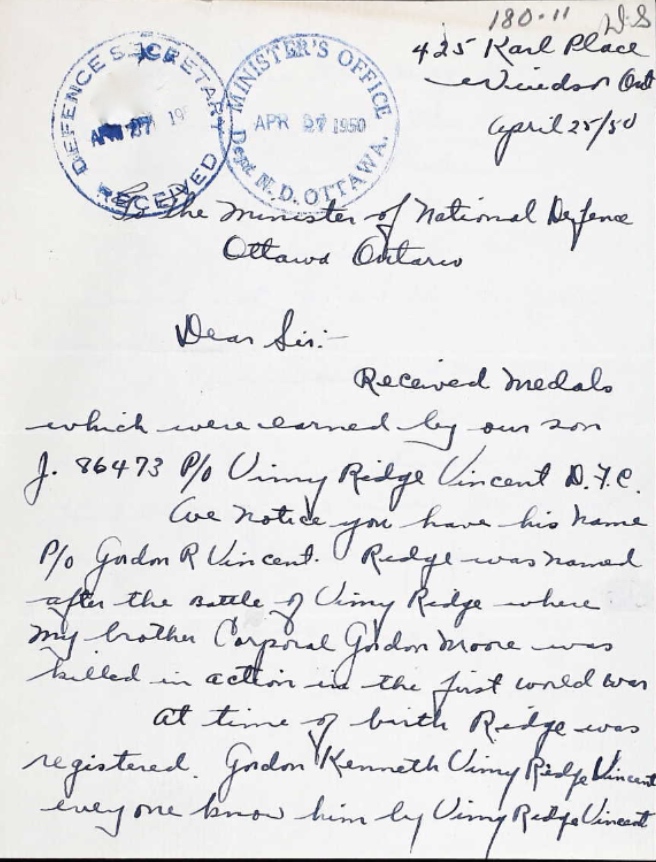 180-11 D.S
425 Karl Place
Windsor Ont
April 25/50
DEFENCE SECRETARY
APR 27 19
RECEIVED
MINISTER'S OFFICE
APR 27 1950
Dept N.D. OTTAWA.
To the Minister of National Defence
Ottawa Ontario
Dear Sir:-
Received medals
which were earned by our son
J. 86473 P/O Vimy Ridge Vincent D.F.C.
We notice you have his name
P/O Gordon R Vincent. Ridge was named
after the Battle of Vimy Ridge where
my brother Corporal Gordon Moore was
killed in action in the first world war
At time of birth Ridge was
registered. Gordon Kenneth Vimy Ridge Vincent
everyone know him by Vimy Ridge Vincent